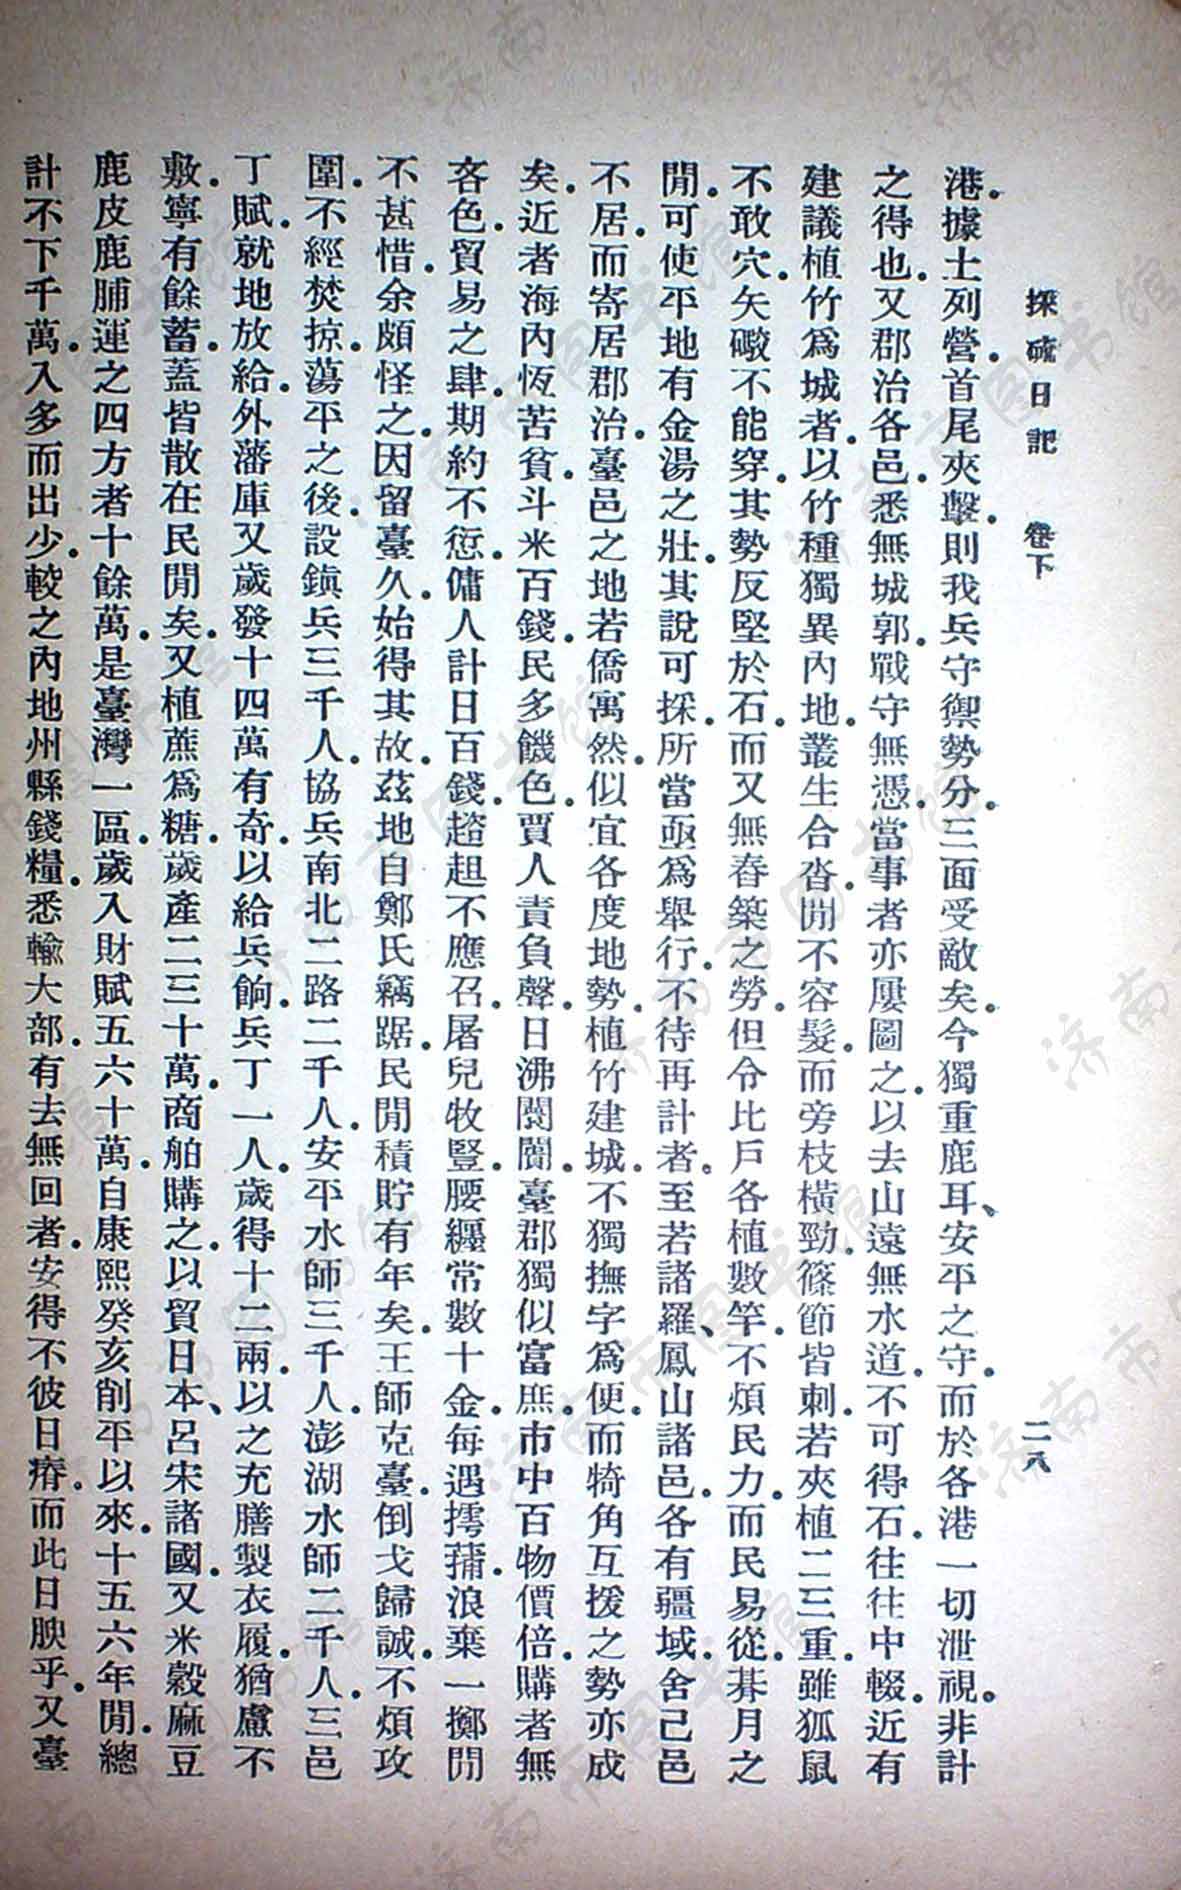 採硫日記　卷下　二八
港。據土列營。首尾夾擊。則我兵守禦勢分。三面受敵矣。今獨重鹿耳、安平之守。而於各港一切泄視。非計
之得也。又郡治各邑。悉無城郭。戰守無憑。當事者亦屢圖之。以去山遠無水道。不可得石。往往中輟。近有
建議植竹爲城者。以竹種獨異內地。叢生合沓。閒不容髮。而旁枝橫勁。篠節皆刺。若夾植二三重。雖狐鼠
不敢穴。矢礮不能穿。其勢反堅於石。而又無舂築之勞。但令比戶各植數竿。不煩民力。而民易從。朞月之
閒。可使平地有金湯之壯。其說可採。所當亟爲舉行。不待再計者。至若諸羅、鳳山諸邑。各有疆域。舍己邑
不居。而寄居郡治。臺邑之地若僑寓然。似宜各度地勢。植竹建城。不獨撫字爲便。而犄角互援之勢亦成
矣。近者海內恆苦貧。斗米百錢。民多饑色。賈人責負聲。日沸闤闠。臺郡獨似富庶。市中百物價倍。購者無
吝色。貿易之肆。期約不愆。傭人計日百錢。趦趄不應召。屠兒牧豎。腰纒常數十金。每遇摴蒱。浪棄一擲閒
不甚惜。余頗怪之。因留臺久。始得其故。茲地自鄭氏竊踞。民閒積貯有年矣。王師克臺。倒戈歸誠。不煩攻
圍。不經焚掠。蕩平之後。設鎭兵三千人。協兵南北二路二千人。安平水師三千人。澎湖水師二千人。三邑
丁賦。就地放給。外藩庫又歲發十四萬有奇。以給兵餉。兵丁一人。歲得十二兩。以之充膳製衣履。猶慮不
敷。寧有餘蓄。蓋皆散在民閒矣。又植蔗爲糖。歲產二三十萬。商舶購之。以貿日本、呂宋諸國。又米穀麻豆
鹿皮鹿脯運之四方者十餘萬。是臺灣一區。歲入財賦五六十萬。自康熙癸亥削平以來。十五六年閒。總
計不下千萬。入多而出少。較之內地州縣錢糧。悉輸大部。有去無回者。安得不彼日瘠。而此日腴乎。又臺